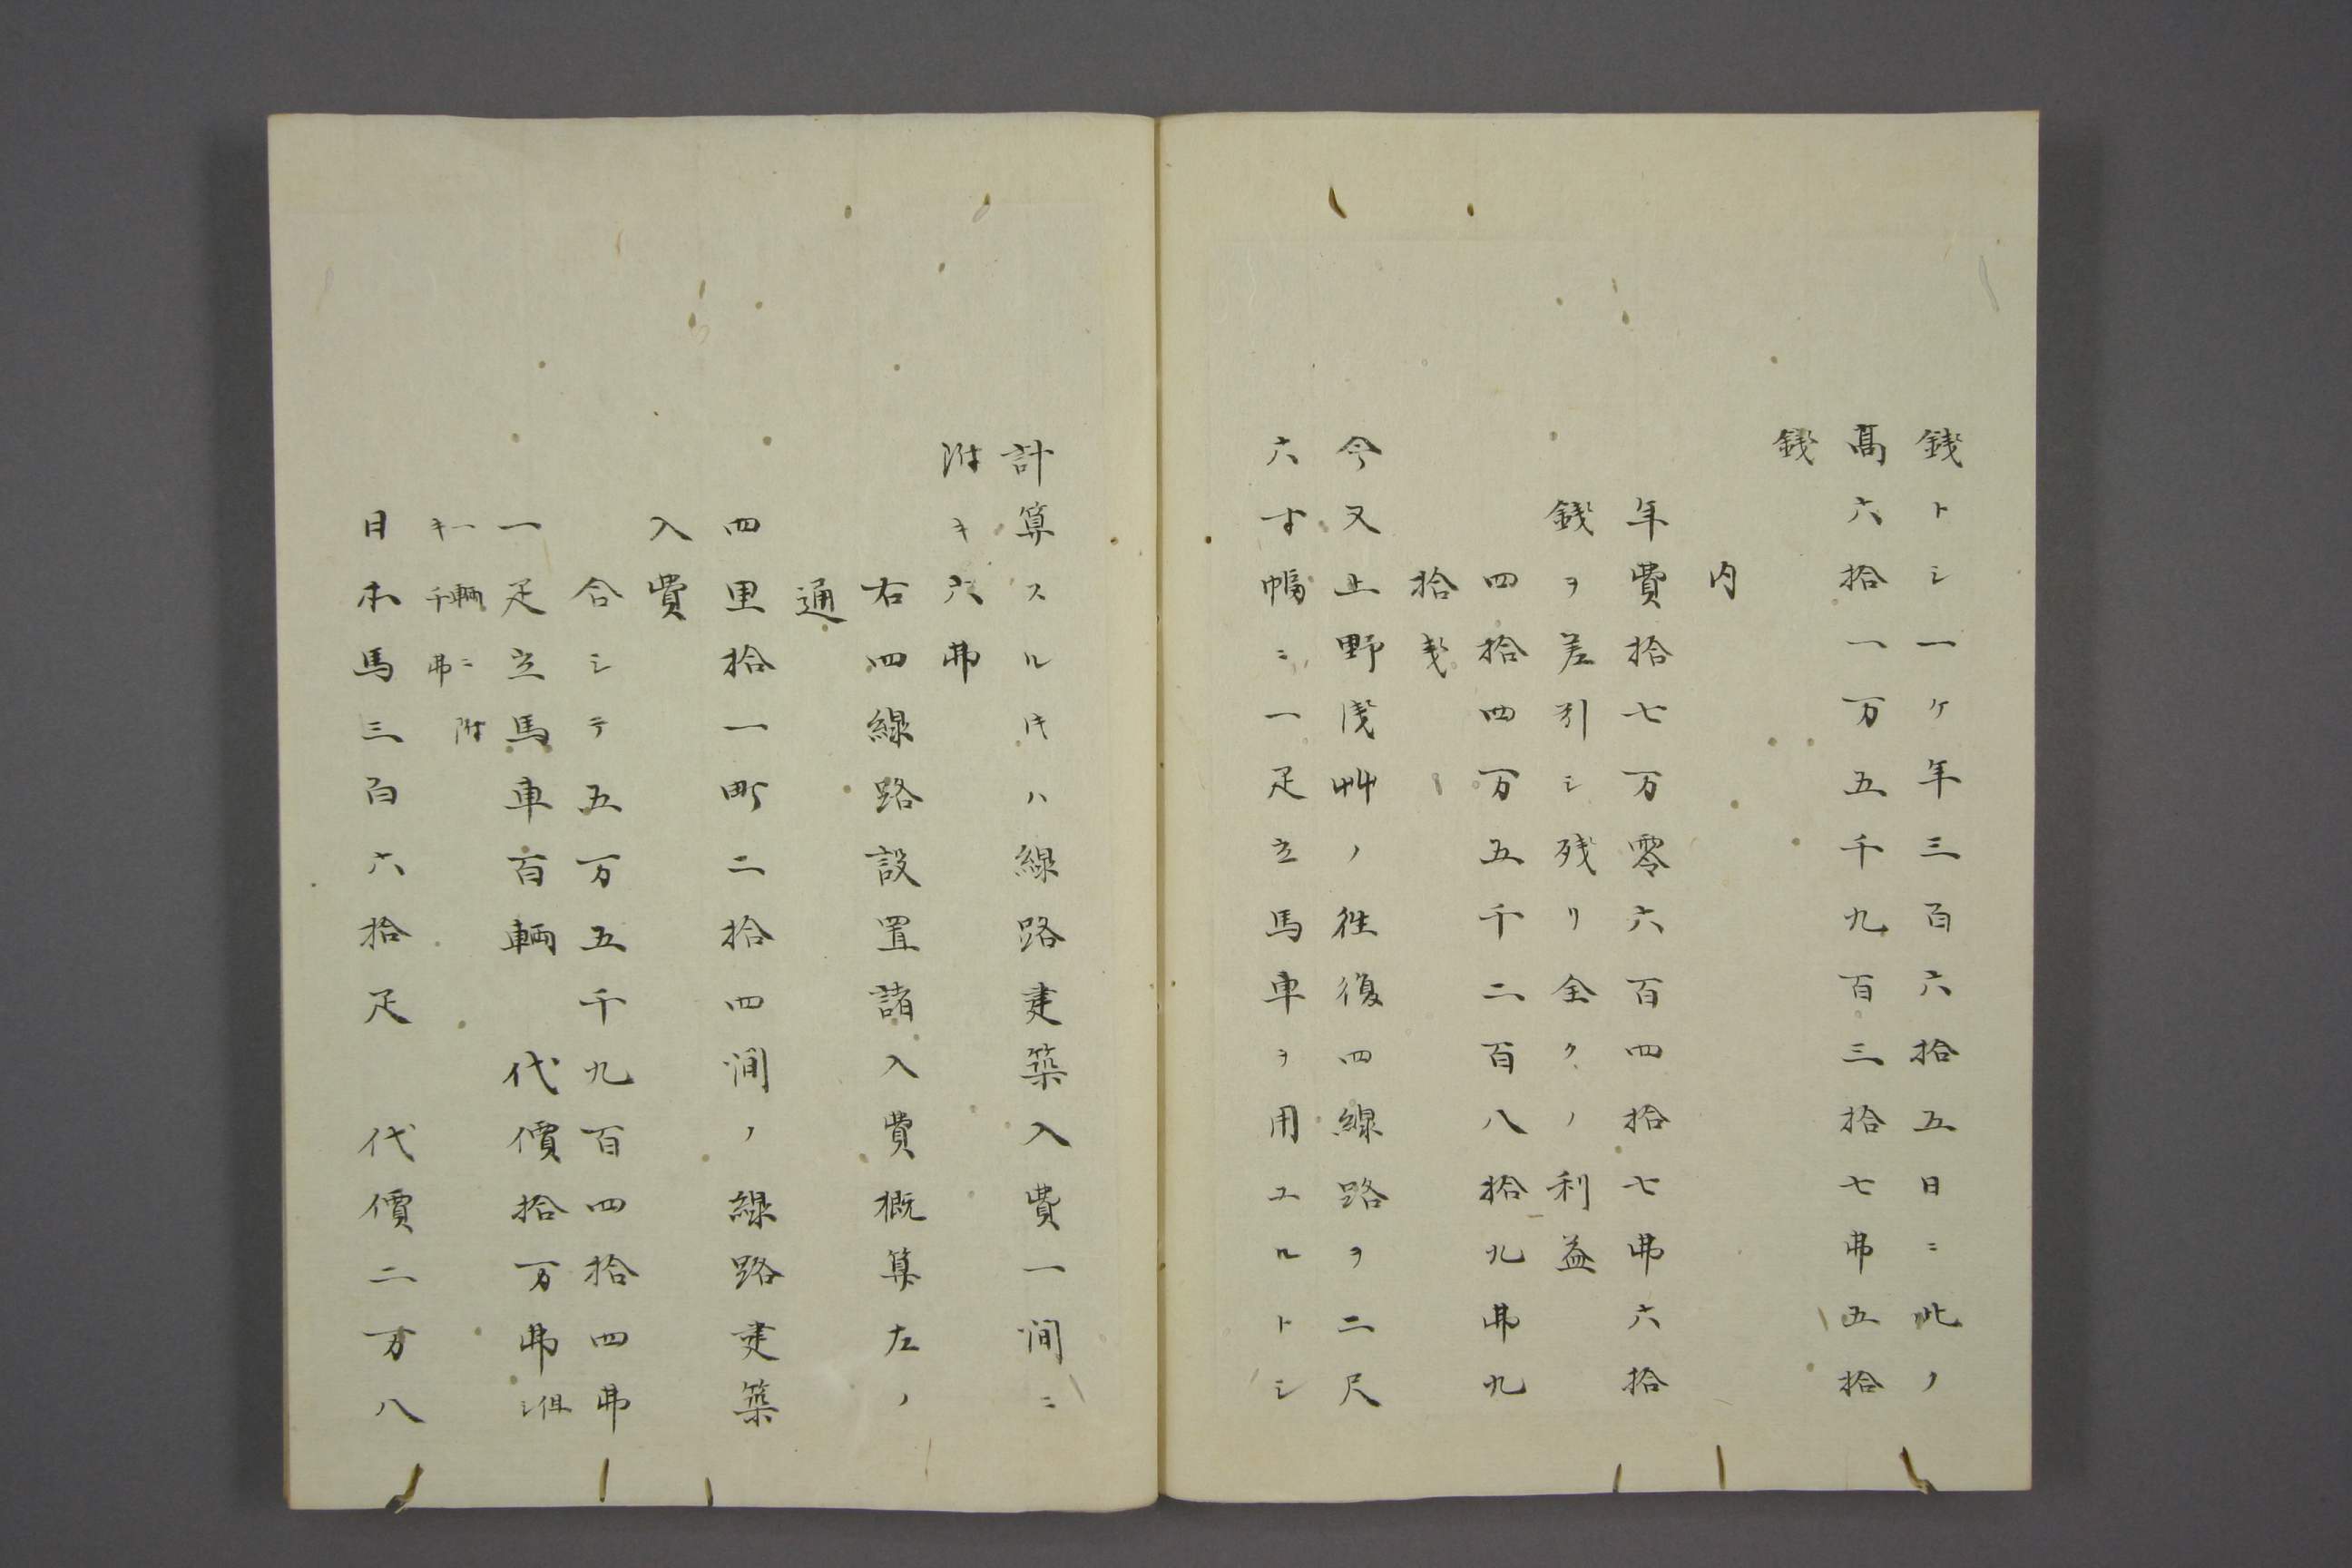 銭トシ一ケ年三百六拾五日ニ此ノ
高六拾一万五千九百三拾七弗五拾
銭
内
年費拾七万零六百四拾七弗六拾
銭ヲ差引シ残リ全クノ利益
四拾四万五千二百八拾九弗九
拾銭
今又上野浅艸ノ徃復四線路ヲ二尺
六寸幅ニ一疋立馬車ヲ用ユルトシ
計算スル𪜈ハ線路建築入費一間ニ
附キ六弗
右四線路設置諸入費概算左ノ
通
四里拾一町二拾四間ノ線路建築
入費
合シテ五万五千九百四拾四弗
一疋立馬車百輌　代價拾万弗但シ
一輌ニ附キ千弗
日本馬三百六拾疋　代價二万八